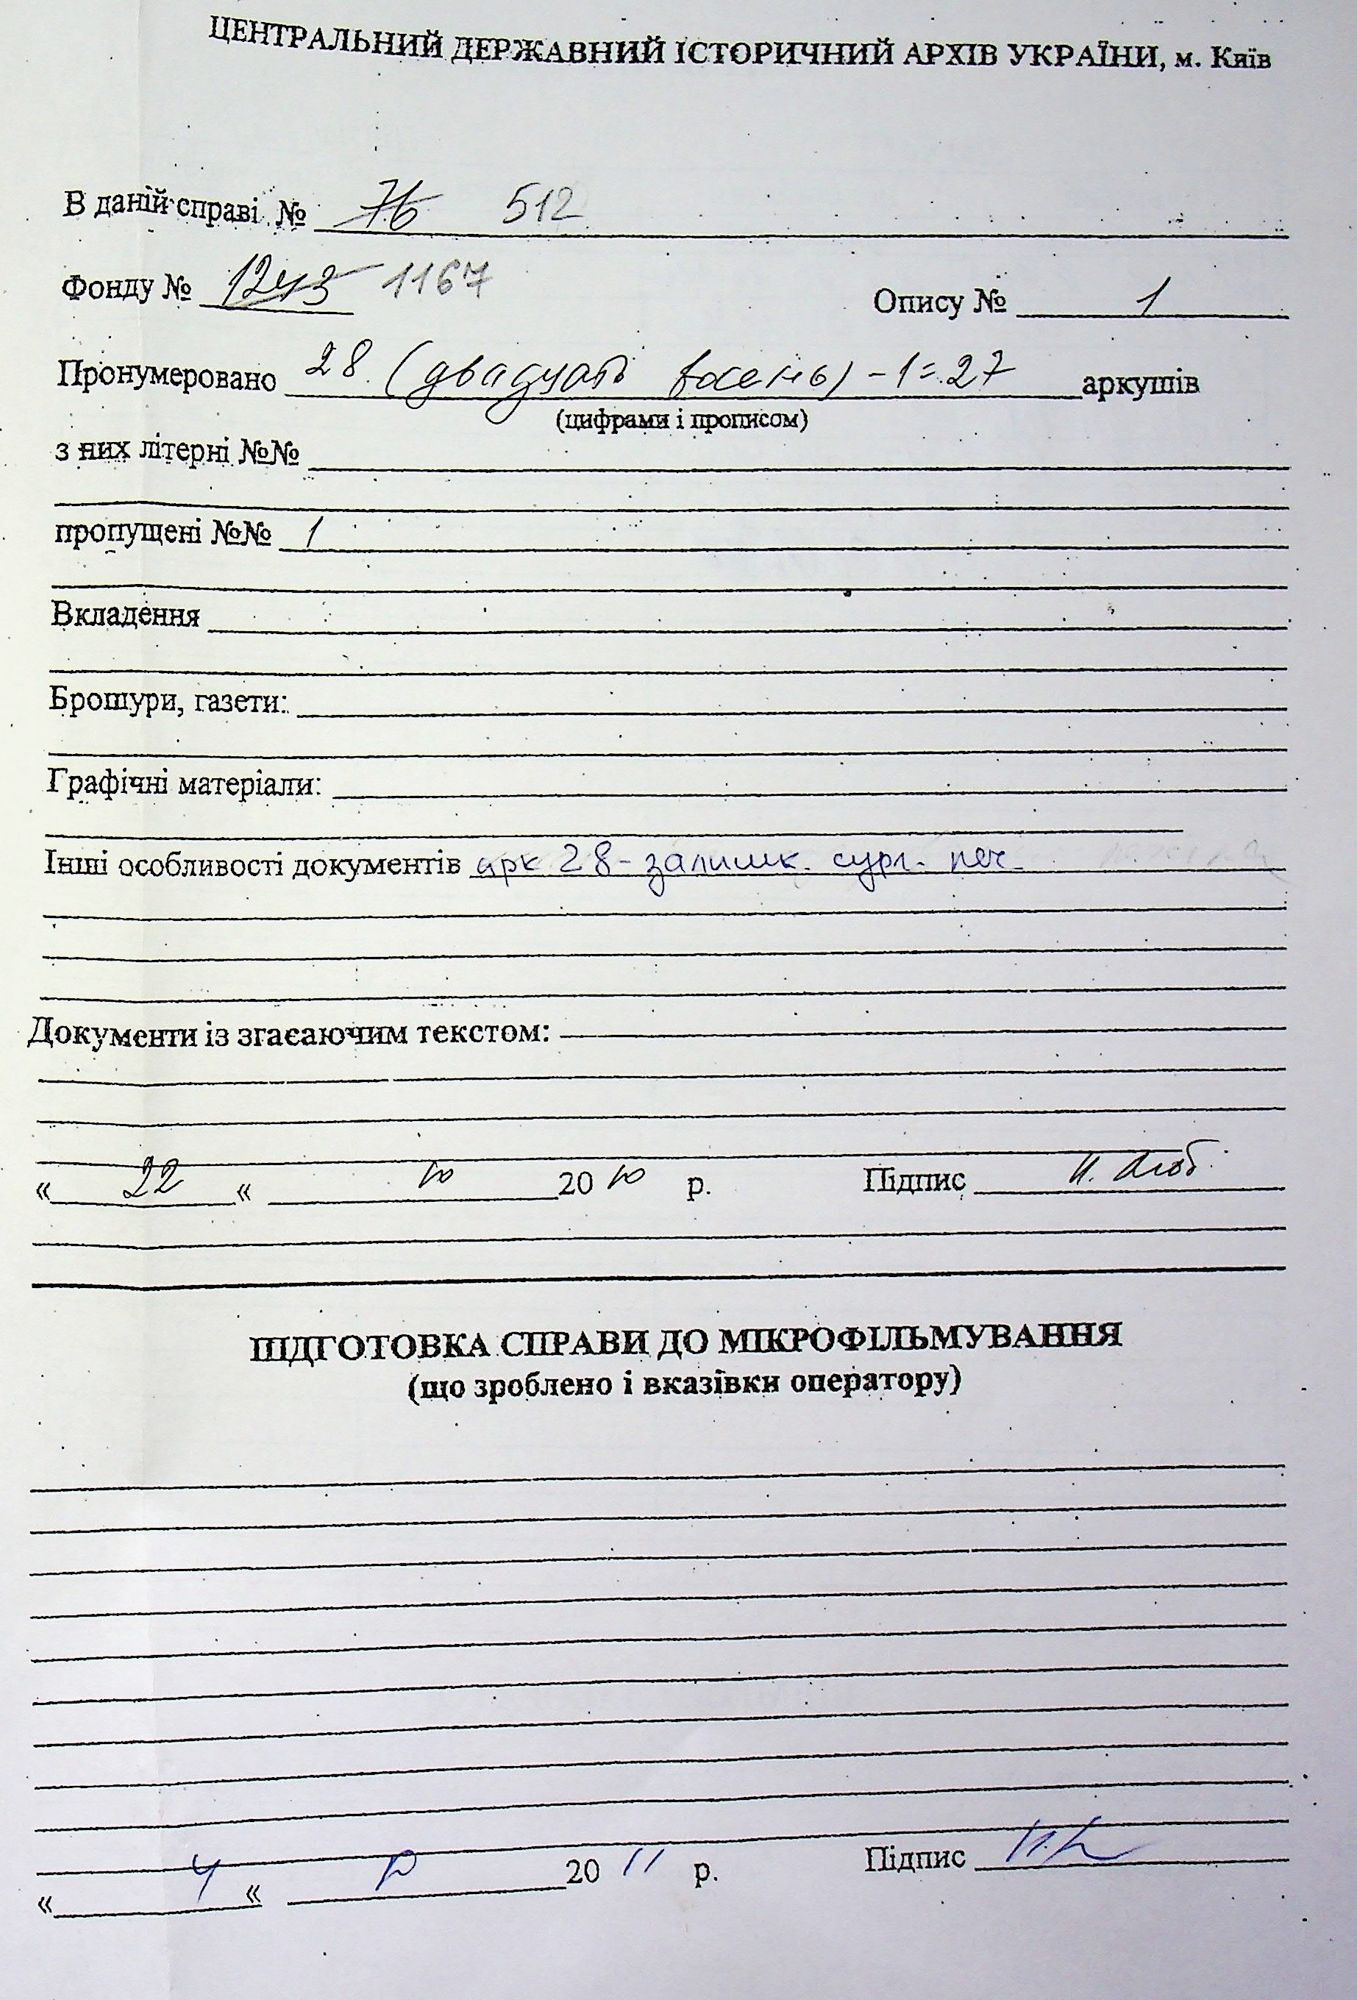 ЦЕНТРАЛЬНИЙ ДЕРЖАВНИЙ ІСТОРИЧНИЙ АРХІВ УКРАЇНИ, м. Київ
В даній справі № 76 512
Фонду № 1243 1167 Опису № 1
Пронумеровано 28 (двадцять восень) - 1 = 27 аркушів
(цифрами і прописом)
з них літерні №№
пропущені №№ 1
Вкладення
Брошури, газети:
Графічні матеріали:
Інші особливості документів арк 28 - залишк. сург. печ.
Документи із згасаючим текстом:
« 22 « 10 20 10 р. Підпис
ПІДГОТОВКА СПРАВИ ДО МІКРОФІЛЬМУВАННЯ
(що зроблено і вказівки оператору)
« 4 « 20 11 р. Підпис